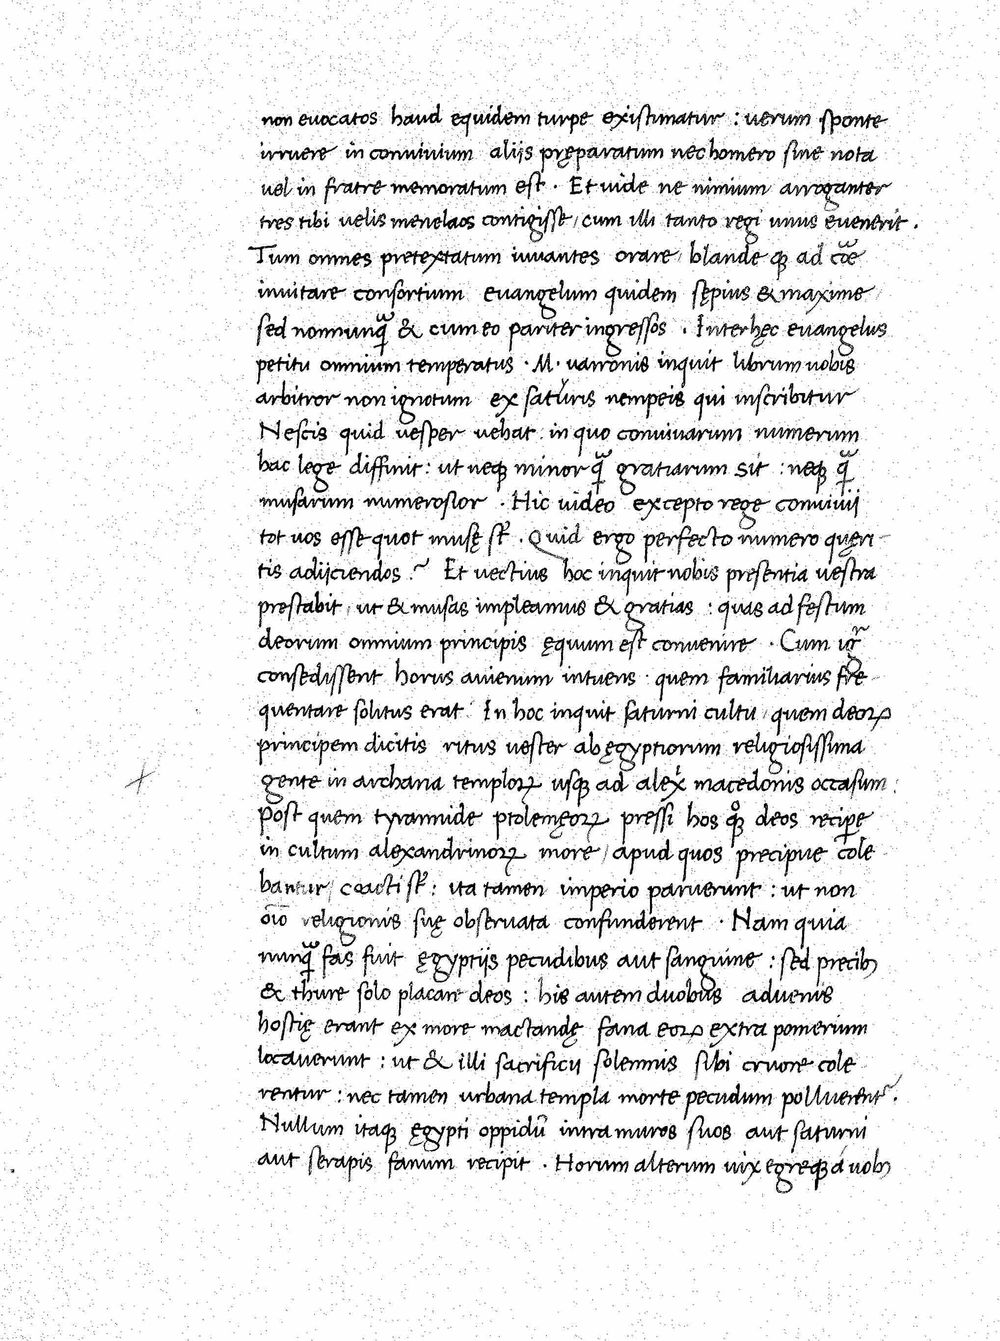 non euocatos haud equidem turpe existimatur : uerum sponte
irruere in conuiuium aliis pręparatum nec homero sine nota
uel in fratre memoratum est . Et uide ne nimium arroganter
tres tibi uelis menelaos contigisse / cum illi tanto regi unus euenerit .
Tum omnes pretextatum iuuantes orare / blande qꝫ ad cōe
inuitare consortium euangelum quidem sępius & maxime /
sed nonnunq̃ & cum eo pariter ingressos . Interhęc euangelus
petitu omnium temperatus · M · uarronis inquit librum uobis
arbitror non ignotum ex saturis nempeis qui inscribitur
Nescis quid uesper uehat . in quo conuiuarum numerum
hac lege diffinit : ut neqꝫ minor q̃ gratiarum sit : neqꝫ q̃
musarum numerosior . Hic uideo excepto rege conuiuij
tot uos esse quot musę st̃ . Quid ergo perfecto numero quęri-
tis adijciendos .~ Et uectius hoc inquit nobis presentia uestra
prestabit / ut & musas impleamus & gratias : quas ad festum
deorum omnium principis ęquum est conuenire . Cum igr̃
consedissent horus auienum intuens · quem familiarius fre-
quentare solitus erat . In hoc inquit saturni cultu / quem deoꝝ
principem dicitis ritus uester ab ęgyptiorum religiosissima
gente in archana temploꝝ usqꝫ ad alex̃ macedonis occasum :
Post quem tyrannide ptolemęoꝝ pressi hos qꝫ deos recipe
in cultum alexandrinoꝝ more / apud quos precipue cole-
bantur / coacti st̃ : ita tamen imperio paruerunt : ut non
oīo religionis suę obseruata confunderent . Nam quia
nunq̃ fas fuit ęgyptijs pecudibus aut sanguine : sed precibꝫ
& thure solo placare deos : his autem duobus aduenis
hostię erant ex more mactandę fana eoꝝ extra pomerium
locauerunt : ut & illi sacrificij solemnis sibi cruore cole
rentur : nec tamen urbana templa morte pecudum polluerent̃ .
Nullum itaqꝫ ęgypti oppidū intra muros suos aut saturni
aut serapis fanum recipit . Horum alterum uix egreqꝫ á uobꝫ